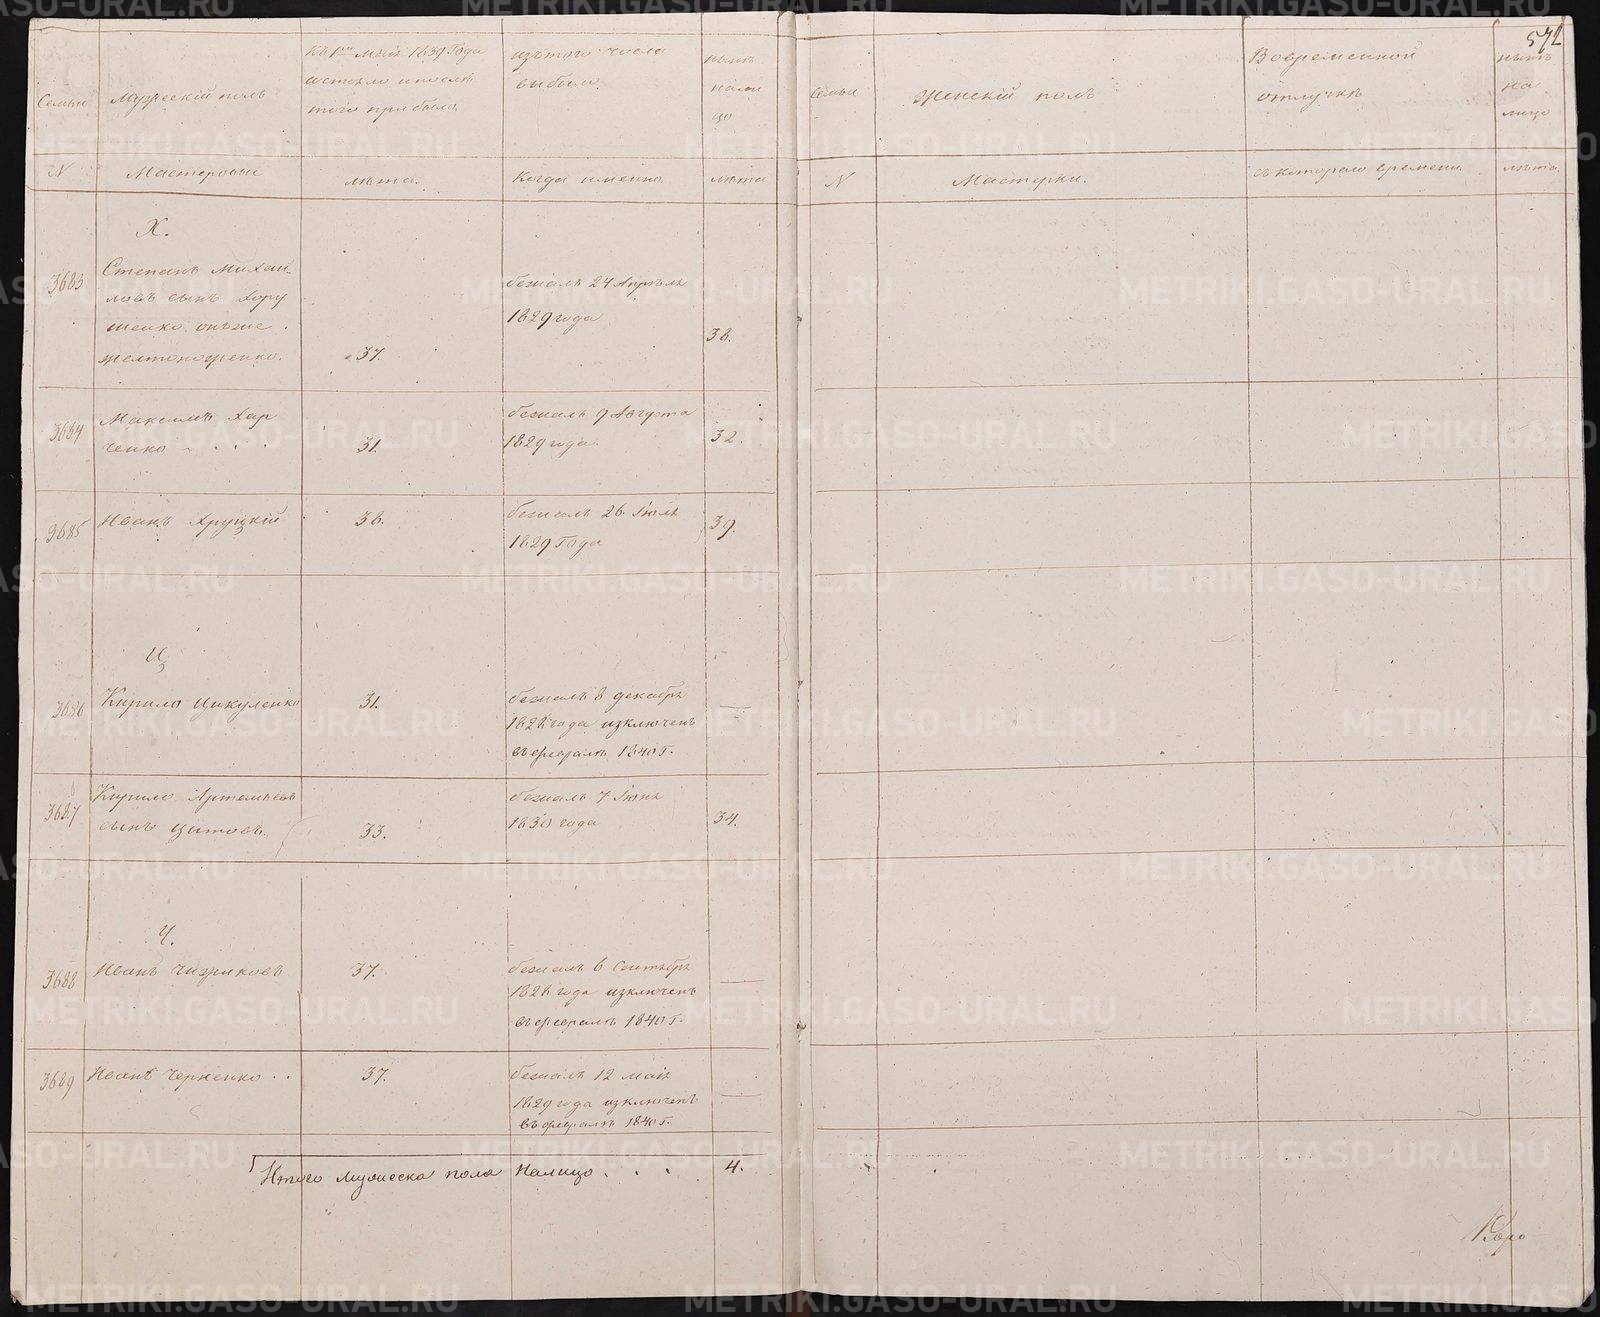 572
Семьи
Мужескій полъ
Къ 1му Маія 1839 Года
состояло и после
того прибыло
изъ того числа
выбыло
нынѣ
нали
цо
N
Мастеровые
лѣта.
Когда именно.
лѣта
Семьи
Женскій полъ
Вовременной
отлучкѣ
нынѣ
на
лицо
N
Мастерки.
съ котораго времени
лѣта.
Х.
3683
Степанъ Михай-
ловъ сынъ Хору
женко онъ же
желтоноженко.
37.
бежалъ 24 Апрѣля
1829 года
38.
3684
Максимъ Хар
ченко . . . .
31.
бежалъ 9 Августа
1829 года.
32.
3685
Иванъ Хруцкій
38.
бежалъ 26. Іюля
1829 Года
39.
Ц
3686
Кирило Цикуленко
31.
бежалъ 8 декабря
1828 года изключенъ
въ февралѣ 1840 Г.
—
3687
Кирило Артемьевъ
сынъ Цытовъ.
33.
бежалъ 7. Іюня
1830 года
34.
Ч.
3688
Иванъ Чизриковъ
37.
бежалъ 6 Сентября
1828 года изключенъ
въ февралѣ 1840 Г.
—
3689
Иванъ Черненко . .
37.
бежалъ 12 маія
1829 года изключенъ
въ февралѣ 1840 Г.
—
Итого Мужеска пола Налицо . . . 4.
METRIKI.GASO-URAL.RU